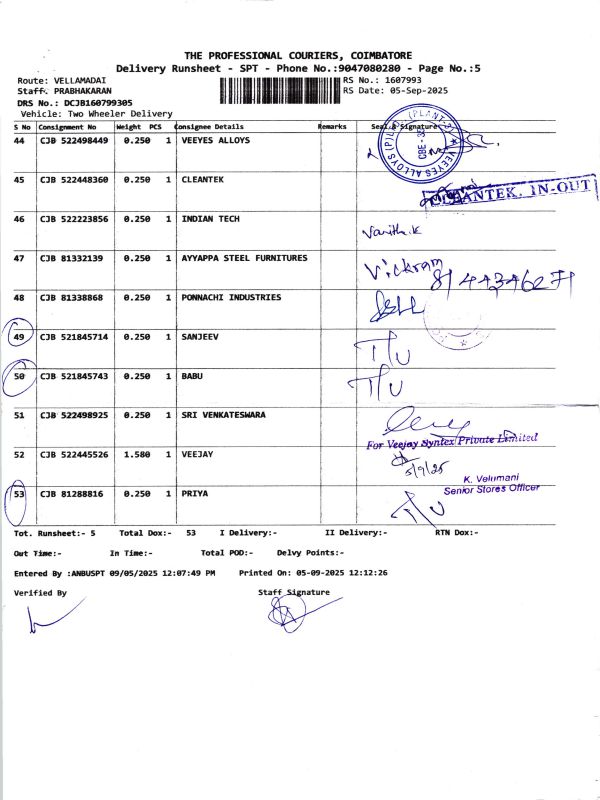 THE PROFESSIONAL COURIERS, COIMBATORE
Delivery Runsheet - SPT - Phone No.:9047080280 - Page No.:5
Route: VELLAMADAI RS No.: 1607993
Staff. PRABHAKARAN RS Date: 05-Sep-2025
DRS No.: DCJB160799305
Vehicle: Two Wheeler Delivery
S No Consignment No Weight PCS Consignee Details Remarks Seal & Signature
44 CJB 522498449 0.250 1 VEEYES ALLOYS
VEEYES ALLOYS (P) (PLANT-2) CBE
45 CJB 522448360 0.250 1 CLEANTEK
CLEANTEK. IN-OUT
46 CJB 522223856 0.250 1 INDIAN TECH
Vanitha.k
47 CJB 81332139 0.250 1 AYYAPPA STEEL FURNITURES
Vickram
48 CJB 81338868 0.250 1 PONNACHI INDUSTRIES
49 CJB 521845714 0.250 1 SANJEEV T/U
50 CJB 521845743 0.250 1 BABU T/U
51 CJB 522498925 0.250 1 SRI VENKATESWARA
For Veejay Syntex Private Limited
52 CJB 522445526 1.580 1 VEEJAY
5/9/25
K. Velumani
Senior Stores Officer
53 CJB 81288816 0.250 1 PRIYA T/U
Tot. Runsheet:- 5 Total Dox:- 53 I Delivery:- II Delivery:- RTN Dox:-
Out Time:- In Time:- Total POD:- Delvy Points:-
Entered By :ANBUSPT 09/05/2025 12:07:49 PM Printed On: 05-09-2025 12:12:26
Verified By Staff Signature